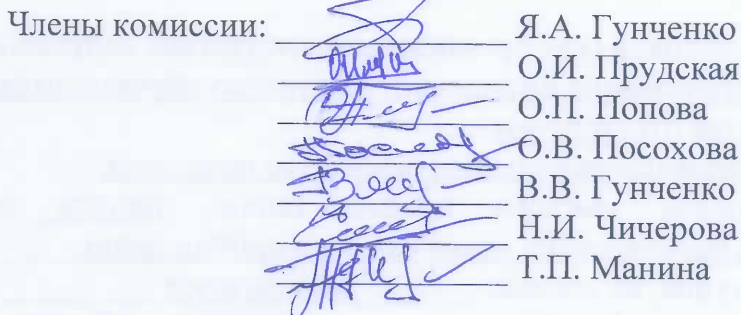 Члены комиссии: Я.А. Гунченко
О.И. Прудская
О.П. Попова
О.В. Посохова
В.В. Гунченко
Н.И. Чичерова
Т.П. Манина